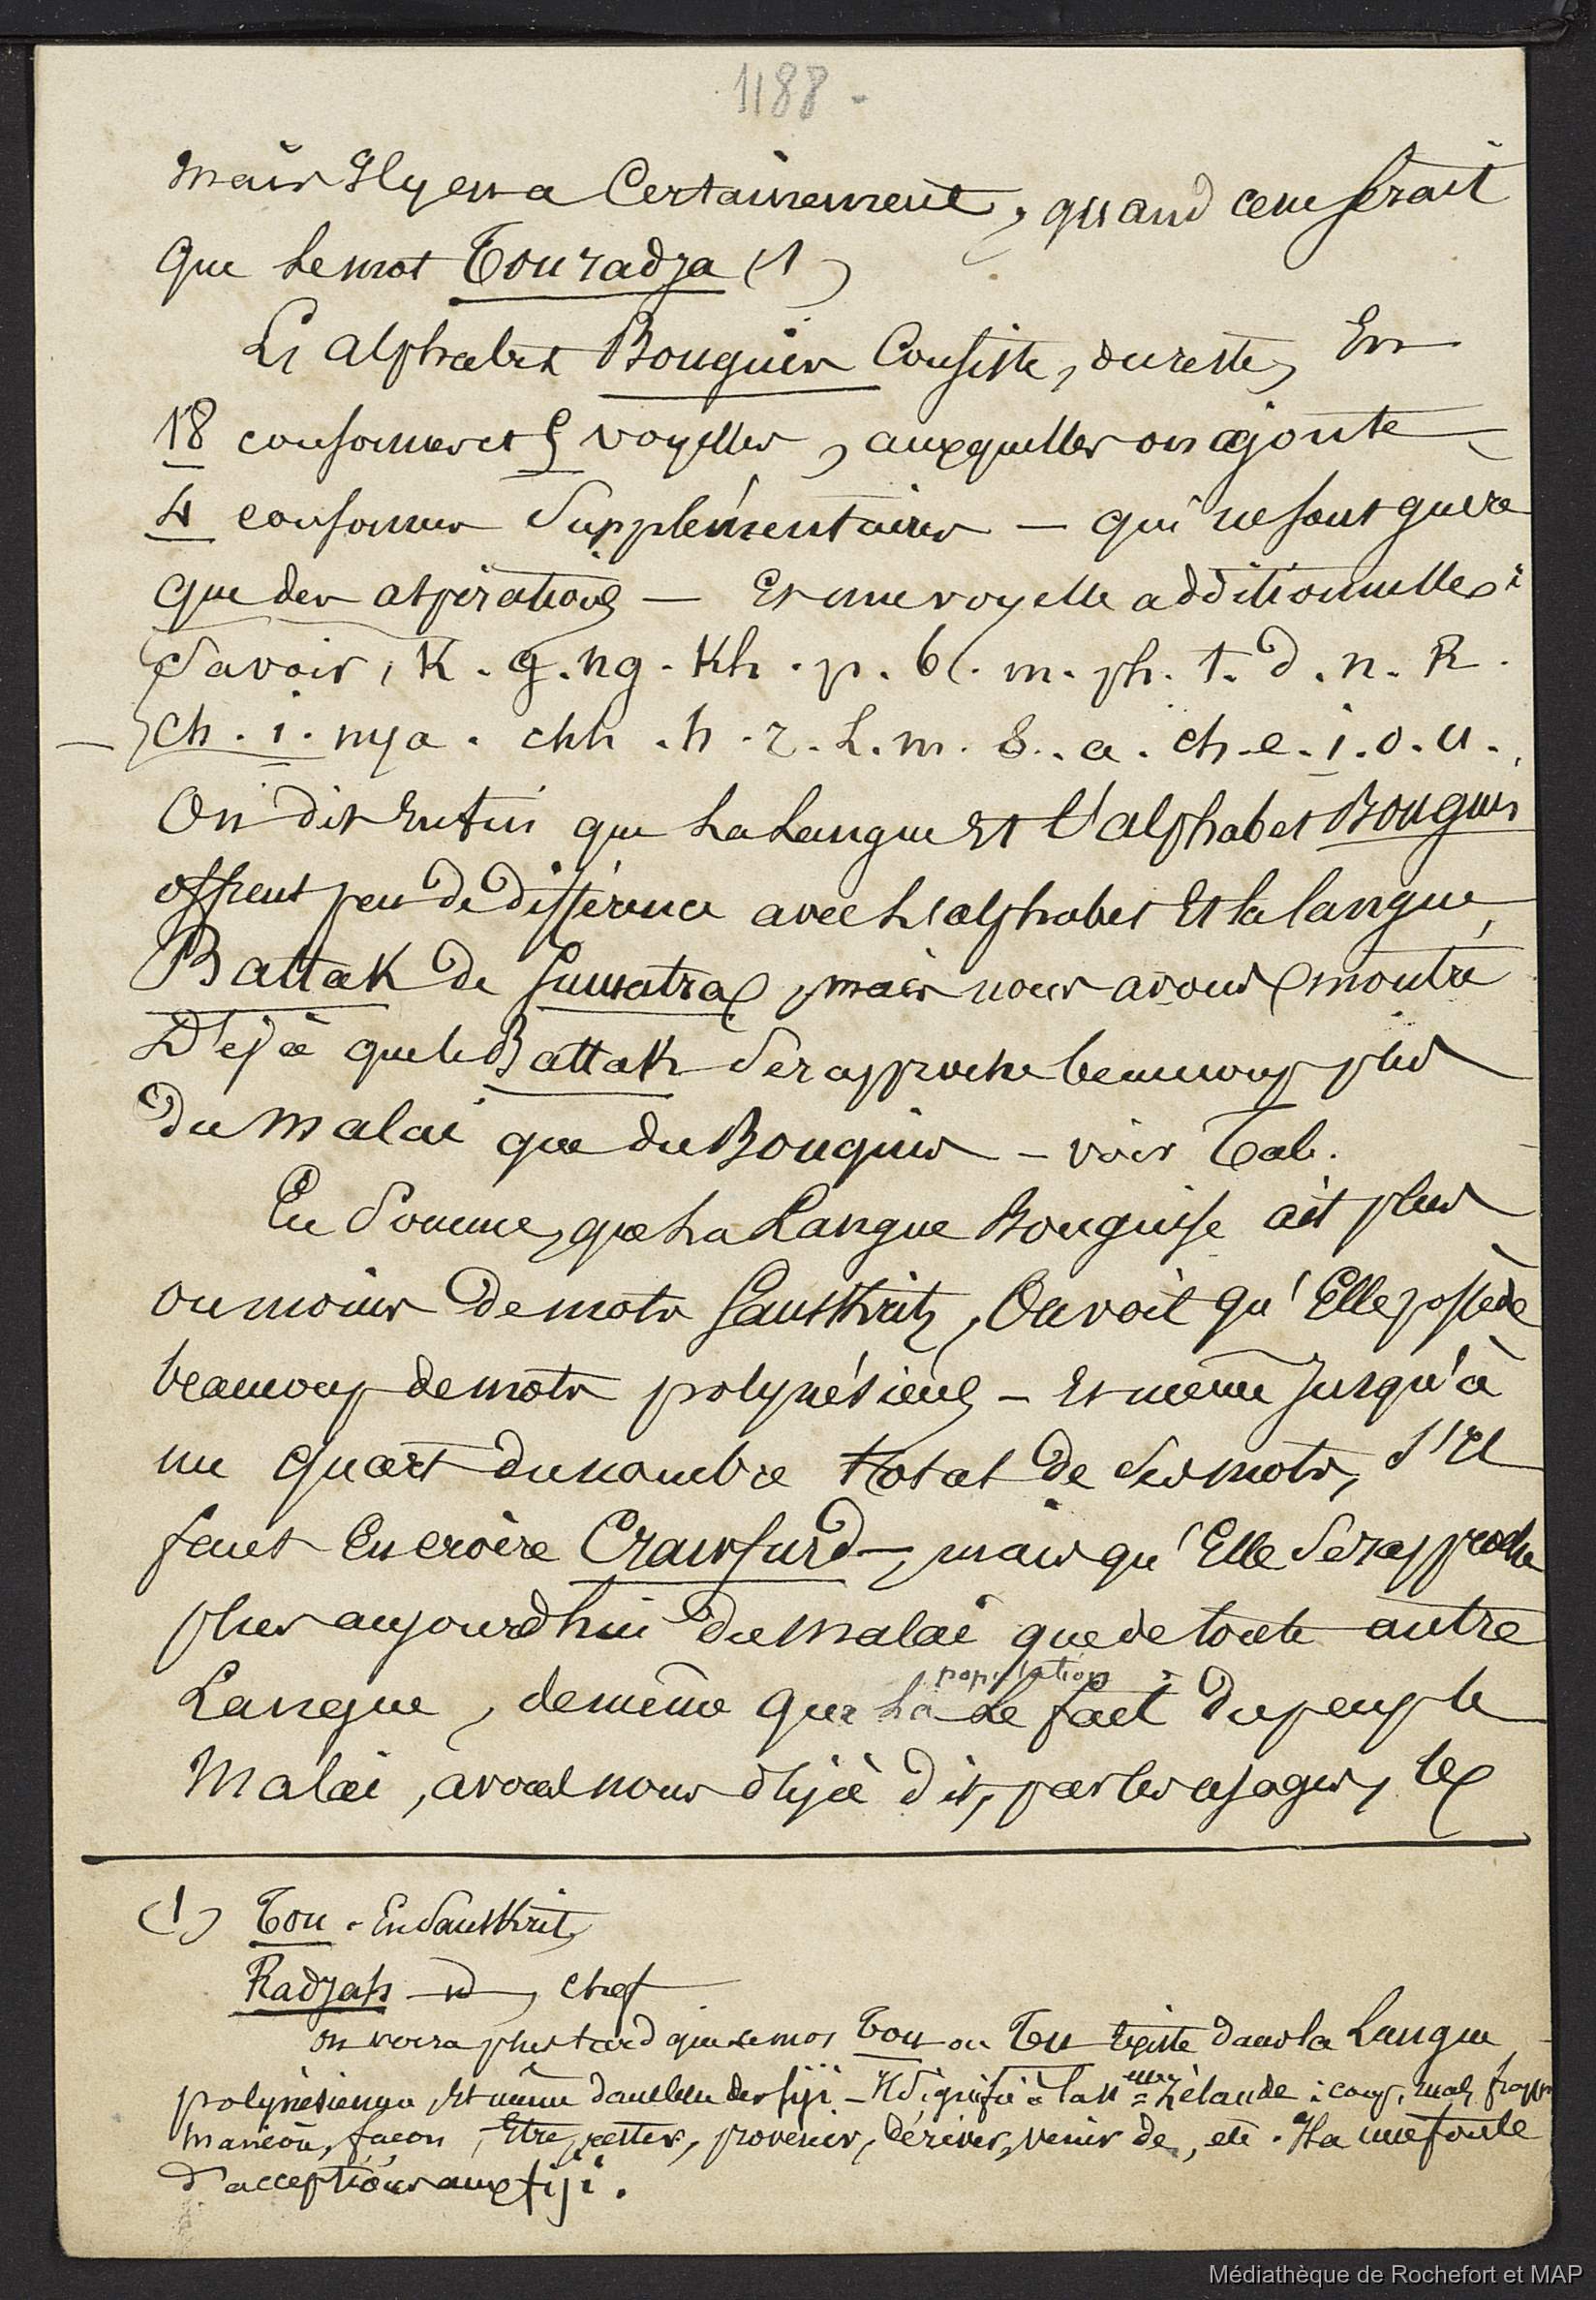 1188 -
mais Il y en a Certainement, quand ce ne serait
que le mot Touradja (1)
L'alphabet Bouguis Consiste, du reste, En
18 consonnes et 5 voyelles, auxquelles on ajoute
4 consonnes supplémentaires — qui ne sont guère
que des aspirations — Et une voyelle additionnelle
Savoir, K. g. ng. Kh. p. b. m. ph. t. d. n. R.
ch. i. nya. chh. h. r. L. m. S.. a. ch. e. i. o. u.
On dit Enfin que La Langue Et l'alphabet Bouguis
offrent peu de différence avec L'alphabet Et la langue
Battak de Sumatra, mais nous avons montré
Déjà que le Battak se rapproche beaucoup plus
du Malai que du Bouguis — voir Tab.
En Somme, que La Langue Bouguise ait plus
ou moins de mots Sanskrits, On voit qu'Elle possède
beaucoup de mots polynésiens — Et même Jusqu'à
un quart du nombre total de ses mots, s'il
faut En croire Crawfurd —, mais qu'Elle se rapproche
plus aujourd'hui du Malai que de toute autre
population
Langue, de même que La Le fait du peuple
Malai, avons nous déjà dit, par les usages, les
(1) Tou - En Sanskrit,
Radjah — id, chef
on verra plus tard que ce mot Tou ou Tu Existe dans la Langue
polynésienne, Et même dans celle des fiji — Il signifie à la Nelle Zélande : coup, mal, frapper
manière, façon, Etre, rester, provenir, dériver, venir de, etc. Il a une foule
d'acceptions aux fiji.
Médiathèque de Rochefort et MAP